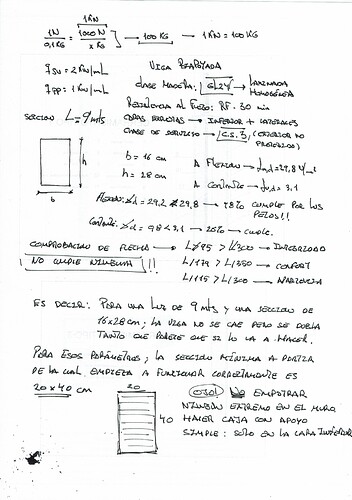 1KN
1N / 0,1KG = 1000N / x KG → 100KG → 1KN = 100KG
qsu = 2KN/mL
VIGA BIAPOYADA
qpp = 1KN/mL
CLASE MADERA: GL24 → LAMINADA HOMOGÉNEA
RESISTENCIA AL FUEGO: RF. 30 min
SECCION L = 9 mts
CARAS EXPUESTAS → INFERIOR + LATERALES
CLASE DE SERVICIO → C.S. 3 (EXTERIOR NO PROTEGIDO)
h
b
b = 16 cm
h = 28 cm
A FLEXION → fm,d = 29,8
A CORTANTE → fv,d = 3,1
FLEXION: = 29,2 29,8 → 98% CUMPLE POR LOS PELOS!!
CORTANTE: = 98 < 3,1 → 20% → CUMPLE.
COMPROBACION DE FLECHA → L/95 > L/300 → INTEGRIDAD
NO CUMPLE NINGUNA !!
L/179 > L/350 → CONFORT
L/115 > L/300 → APARIENCIA
ES DECIR: PARA UNA LUZ DE 9 mts Y UNA SECCION DE
16x28 cm; LA VIGA NO SE CAE PERO SE DOBLA
TANTO QUE PARECE QUE SI LO VA A HACER.
PARA ESOS PARÁMETROS; LA SECCION MÍNIMA A PARTIR
DE LA CUAL EMPIEZA A FUNCIONAR CORRECTAMENTE ES
20 x 40 cm
20
40
OJO! NO EMPOTRAR
NINGÚN EXTREMO EN EL MURO
HACER CAJA CON APOYO
SIMPLE: SOLO EN LA CARA INFERIOR